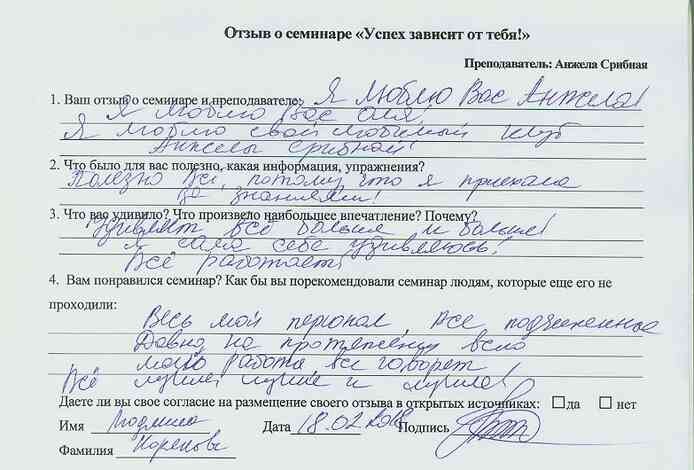 Отзыв о семинаре «Успех зависит от тебя!»
Преподаватель: Анжела Срибная
1. Ваш отзыв о семинаре и преподавателе: Я люблю Вас Анжела!
Я люблю Вас Оля!
Я люблю свой любимый клуб
Анжелы Срибной!
2. Что было для вас полезно, какая информация, упражнения?
Полезно всё, потому, что я приехала
за знаниями!
3. Что вас удивило? Что произвело наибольшее впечатление? Почему?
Удивляет всё больше и больше!
Я сама себе удивляюсь!
Всё работает!
4. Вам понравился семинар? Как бы вы порекомендовали семинар людям, которые еще его не
проходили:
Весь мой персонал, все подчиненные
Давно на протяжении всего
работа все говорят
Всё лучше, лучше и лучше!
Даете ли вы свое согласие на размещение своего отзыва в открытых источниках: да нет
Имя Людмила Дата 18.02.2018 Подпись
Фамилия